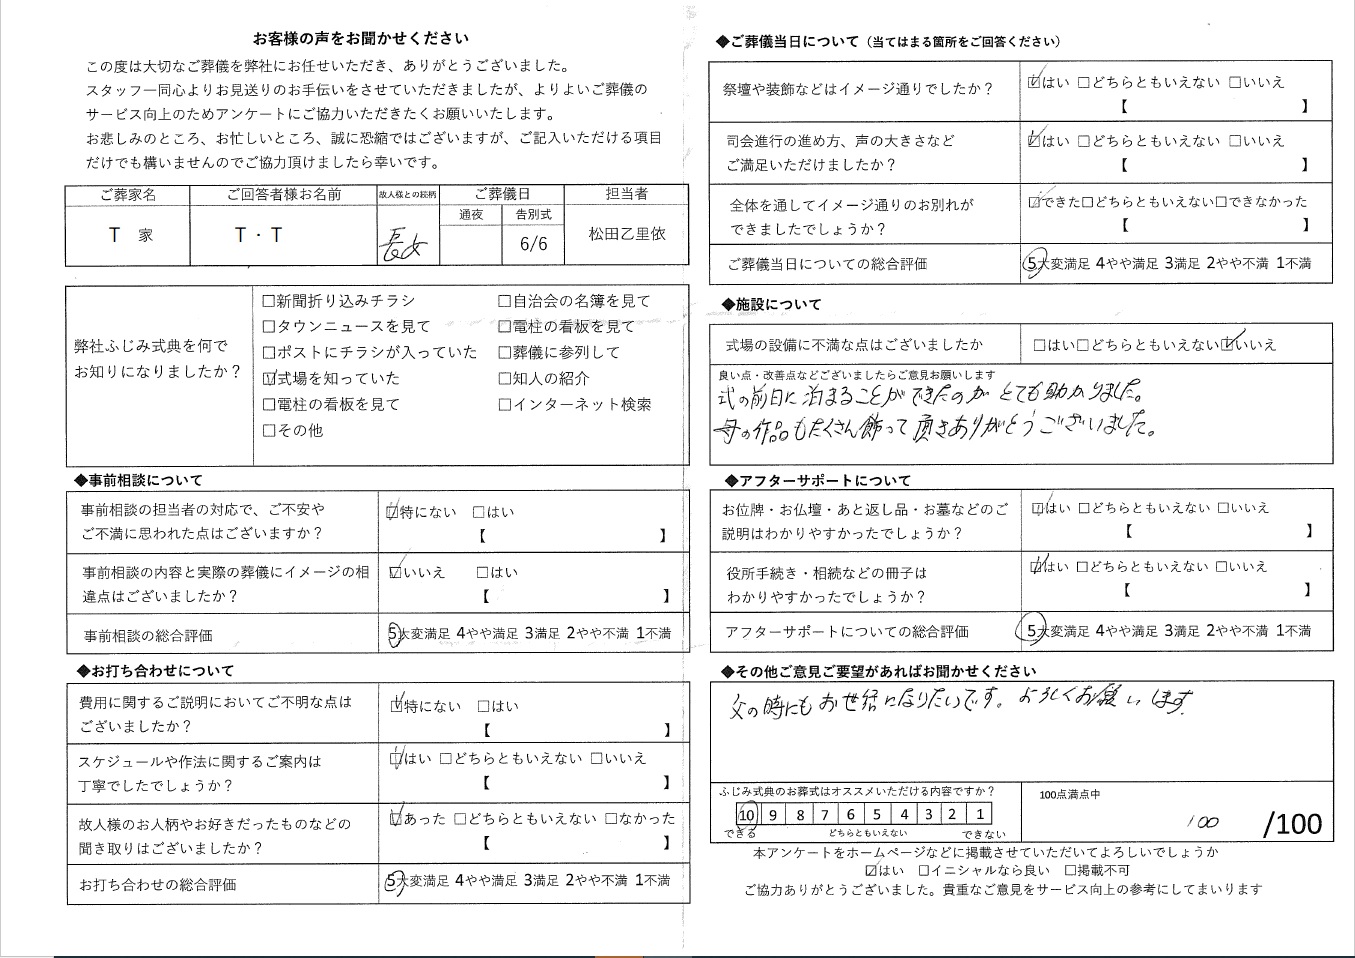 お客様の声をお聞かせください
この度は大切なご葬儀を弊社にお任せいただき、ありがとうございました。
スタッフ一同心よりお見送りのお手伝いをさせていただきましたが、よりよいご葬儀の
サービス向上のためアンケートにご協力いただきたくお願いいたします。
お悲しみのところ、お忙しいところ、誠に恐縮ではございますが、ご記入いただける項目
だけでも構いませんのでご協力頂けましたら幸いです。
ご葬家名 ご回答者様お名前 故人様との続柄 ご葬儀日 担当者
通夜 告別式
T 家 T・T 長女 6/6 松田乙里依
弊社ふじみ式典を何で
お知りになりましたか？
☐新聞折り込みチラシ ☐自治会の名簿を見て
☐タウンニュースを見て ☐電柱の看板を見て
☐ポストにチラシが入っていた ☐葬儀に参列して
☑式場を知っていた ☐知人の紹介
☐電柱の看板を見て ☐インターネット検索
☐その他
◆事前相談について
事前相談の担当者の対応で、ご不安や
ご不満に思われた点はございますか？
☑特にない ☐はい
【 】
事前相談の内容と実際の葬儀にイメージの相
違点はございましたか？
☑いいえ ☐はい
【 】
事前相談の総合評価 5大変満足 4やや満足 3満足 2やや不満 1不満
◆お打ち合わせについて
費用に関するご説明においてご不明な点は
ございましたか？
☑特にない ☐はい
【 】
スケジュールや作法に関するご案内は
丁寧でしたでしょうか？
☑はい ☐どちらともいえない ☐いいえ
【 】
故人様のお人柄やお好きだったものなどの
聞き取りはございましたか？
☑あった ☐どちらともいえない ☐なかった
【 】
お打ち合わせの総合評価 5大変満足 4やや満足 3満足 2やや不満 1不満
◆ご葬儀当日について（当てはまる箇所をご回答ください）
祭壇や装飾などはイメージ通りでしたか？
☑はい ☐どちらともいえない ☐いいえ
【 】
司会進行の進め方、声の大きさなど
ご満足いただけましたか？
☑はい ☐どちらともいえない ☐いいえ
【 】
全体を通してイメージ通りのお別れが
できましたでしょうか？
☑できた☐どちらともいえない☐できなかった
【 】
ご葬儀当日についての総合評価 5大変満足 4やや満足 3満足 2やや不満 1不満
◆施設について
式場の設備に不満な点はございましたか ☐はい☐どちらともいえない☑いいえ
良い点・改善点などございましたらご意見お願いします
式の前日に泊まることができたのが とても助かりました。
母の作品もたくさん飾って頂きありがとうございました。
◆アフターサポートについて
お位牌・お仏壇・あと返し品・お墓などのご
説明はわかりやすかったでしょうか？
☑はい ☐どちらともいえない ☐いいえ
【 】
役所手続き・相続などの冊子は
わかりやすかったでしょうか？
☑はい ☐どちらともいえない ☐いいえ
【 】
アフターサポートについての総合評価 5大変満足 4やや満足 3満足 2やや不満 1不満
◆その他ご意見ご要望があればお聞かせください
父の時にもお世話になりたいです。よろしくお願いします。
ふじみ式典のお葬式はオススメいただける内容ですか？
10 9 8 7 6 5 4 3 2 1
できる どちらともいえない できない
100点満点中
100 /100
本アンケートをホームページなどに掲載させていただいてよろしいでしょうか
☑はい ☐イニシャルなら良い ☐掲載不可
ご協力ありがとうございました。貴重なご意見をサービス向上の参考にしてまいります